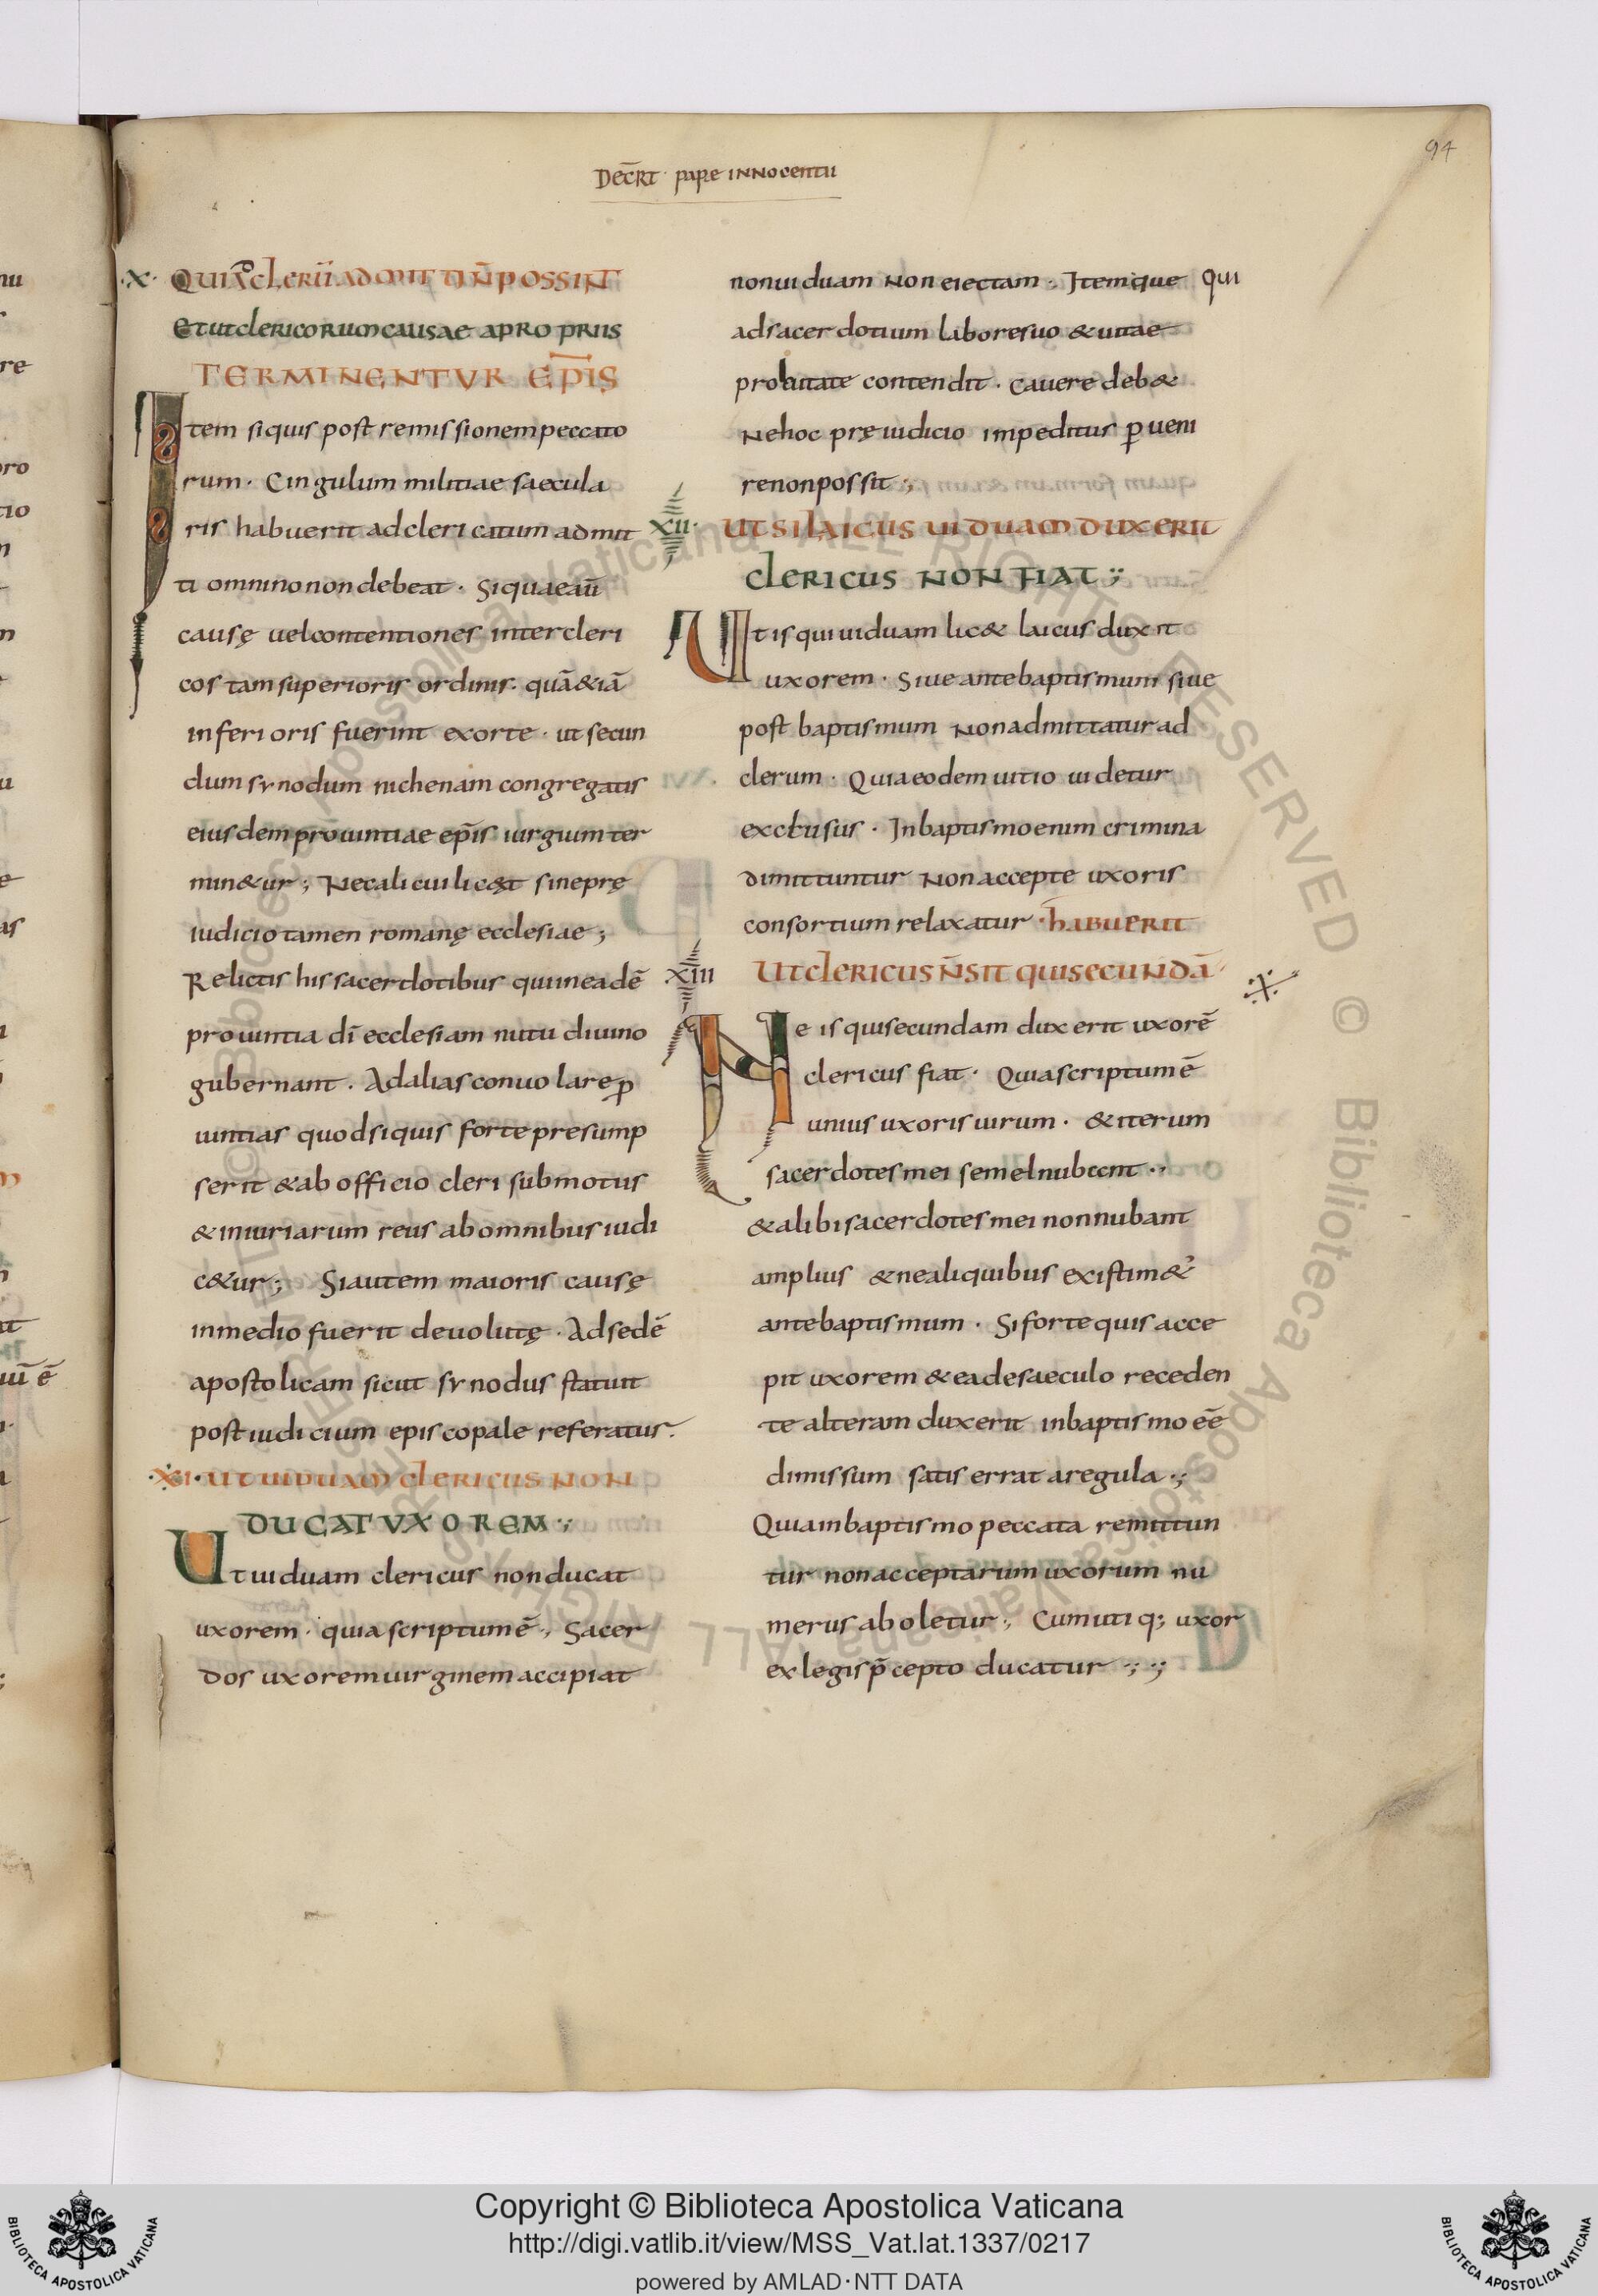 94
Decr̄t pape innocentii
·X· QUIA CLERŪ ADMITTI N̄ POSSINT
ET UT CLERICORUM CAUSAE A PROPRIIS
TERMINENTVR EP̄IS
Item siquis post remissionem peccato
rum. Cingulum militiae saecula
ris habuerit ad clericatum admit
ti omnino non debeat. Si quae aū
causę uel contentiones inter cleri
cos tam superioris ordinis. quā & iā
inferioris fuerint exorte. ut secun
dum synodum nichenam congregatis
eiusdem prouintiae ep̄is iurgium ter
min&ur; Nec alicui licęt sine prę
iudicio tamen romanę ecclesiae;
Relictis his sacerdotibus qui in eadē
prouintia dī ecclesiam nutu diuino
gubernant. Ad alias conuolare ꝓ
uintias quod siquis forte presump
serit & ab officio cleri submotus
& iniuriarum reus ab omnibus iudi
c&ur; Si autem maioris causę
in medio fuerit deuolutę. Ad sedē
apostolicam sicut synodus statuit
post iudicium episcopale referatur.
·XI· UT UIDUAM CLERICUS NON
DUCAT VXOREM·;
Ut uiduam clericus non ducat
uxorem. quia scriptum ē., Sacer
dos uxorem uirginem accipiat
non uiduam non eiectam., Itemque qui
ad sacerdotium labore suo & uitae
probitate contendit. cauere deb&
Ne hoc pręiudicio impeditus ꝑueni
re non possit.,
XII· UT SI LAICUS UIDUAM DUXERIT
CLERICUS NON FIAT·;
Ut is qui uiduam lic& laicus duxit
uxorem. Siue ante baptismum siue
post baptismum non admittatur ad
clerum. Quia eodem uitio uidetur
exclusus. In baptismo enim crimina
dimittuntur non accepte uxoris
consortium relaxatur. HABUERIT
XIII UT CLERICUS N̄ SIT QUI SECUNDĀ
Ne is qui secundam duxerit uxorē
clericus fiat. Quia scriptum ē
unius uxoris uirum. & iterum
sacerdotes mei semel nubent.,
& alibi sacerdotes mei non nubant
amplius & ne aliquibus existim&ʼ
ante baptismum. Si forte quis acce
pit uxorem & ea de saeculo receden
te alteram duxerit in baptismo eē
dimissum satis errat a regula·;
Quia in baptismo peccata remittun
tur non acceptarum uxorum nu
merus aboletur., Cum utiq; uxor
ex legis p̄cepto ducatur·;·;
Copyright © Biblioteca Apostolica Vaticana
http://digi.vatlib.it/view/MSS_Vat.lat.1337/0217
powered by AMLAD·NTT DATA
BIBLIOTECA APOSTOLICA VATICANA
BIBLIOTECA APOSTOLICA VATICANA